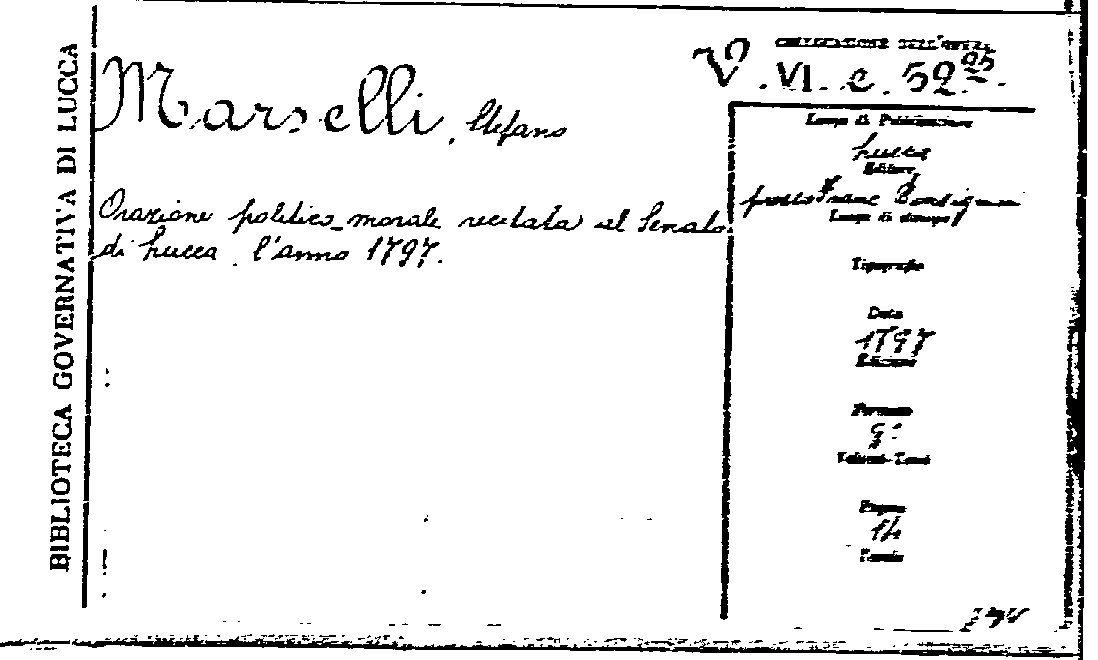 BIBLIOTECA GOVERNATIVA DI LUCCA
COLLOCAZIONE DELL'OPERA
V. VI. c. 52.25.
Marselli, Stefano
Orazione politico-morale recitata al Senato
di Lucca l'anno 1797.
Luogo di Pubblicazione
Lucca
Editore
presso Franc Bonsignori
Luogo di stampa
Tipografo
Data
1797
Edizione
Formato
8°
Volumi-Tomi
Pagine
14
Tavole